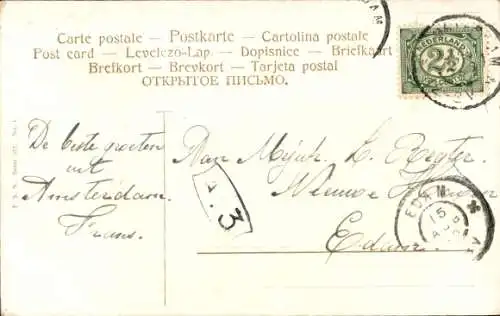 Carte postale — Postkarte — Cartolina postale
Post card — Levelezö-Lap. — Dopisnice — Briefkaart
Brefkort — Brevkort — Tarjeta postal
ОТКРЫТОЕ ПИСЬМО.
NEDERLAND
2½
De beste groeten
uit
Amsterdam.
Frans.
Aan Mejufr.
Nieuwe
Edam.
A.3
EDAM
15